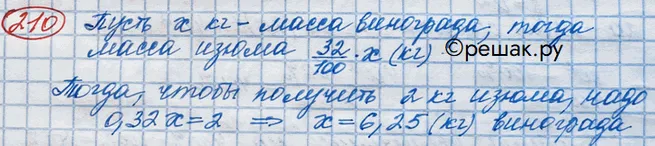 210 Пусть x кг - масса винограда, тогда
масса изюма 32/100 · x (кг) ©решак.ру
Тогда, чтобы получить 2 кг изюма, надо
0,32x=2 ⇒ x=6,25 (кг) винограда